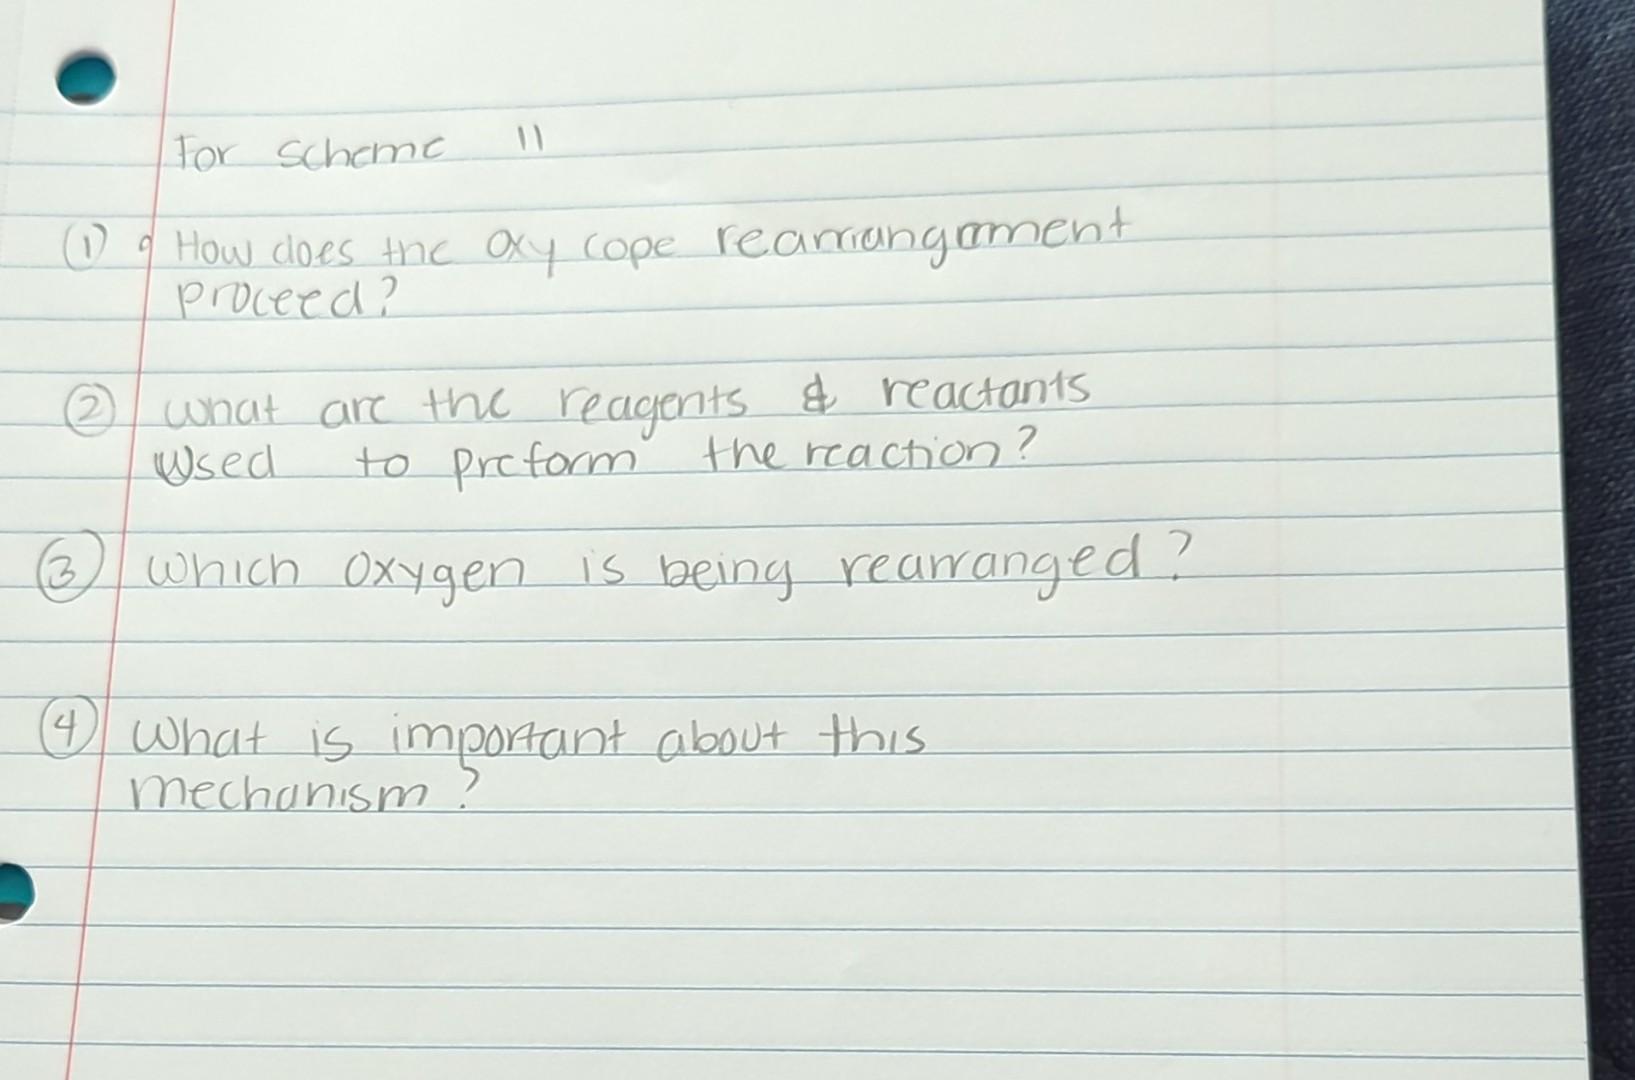 For scheme 11
(1) How does the oxy cope rearrangement
proceed?
(2) what are the reagents & reactants
Used to preform the reaction?
(3) which oxygen is being rearranged?
(4) What is important about this
mechanism?